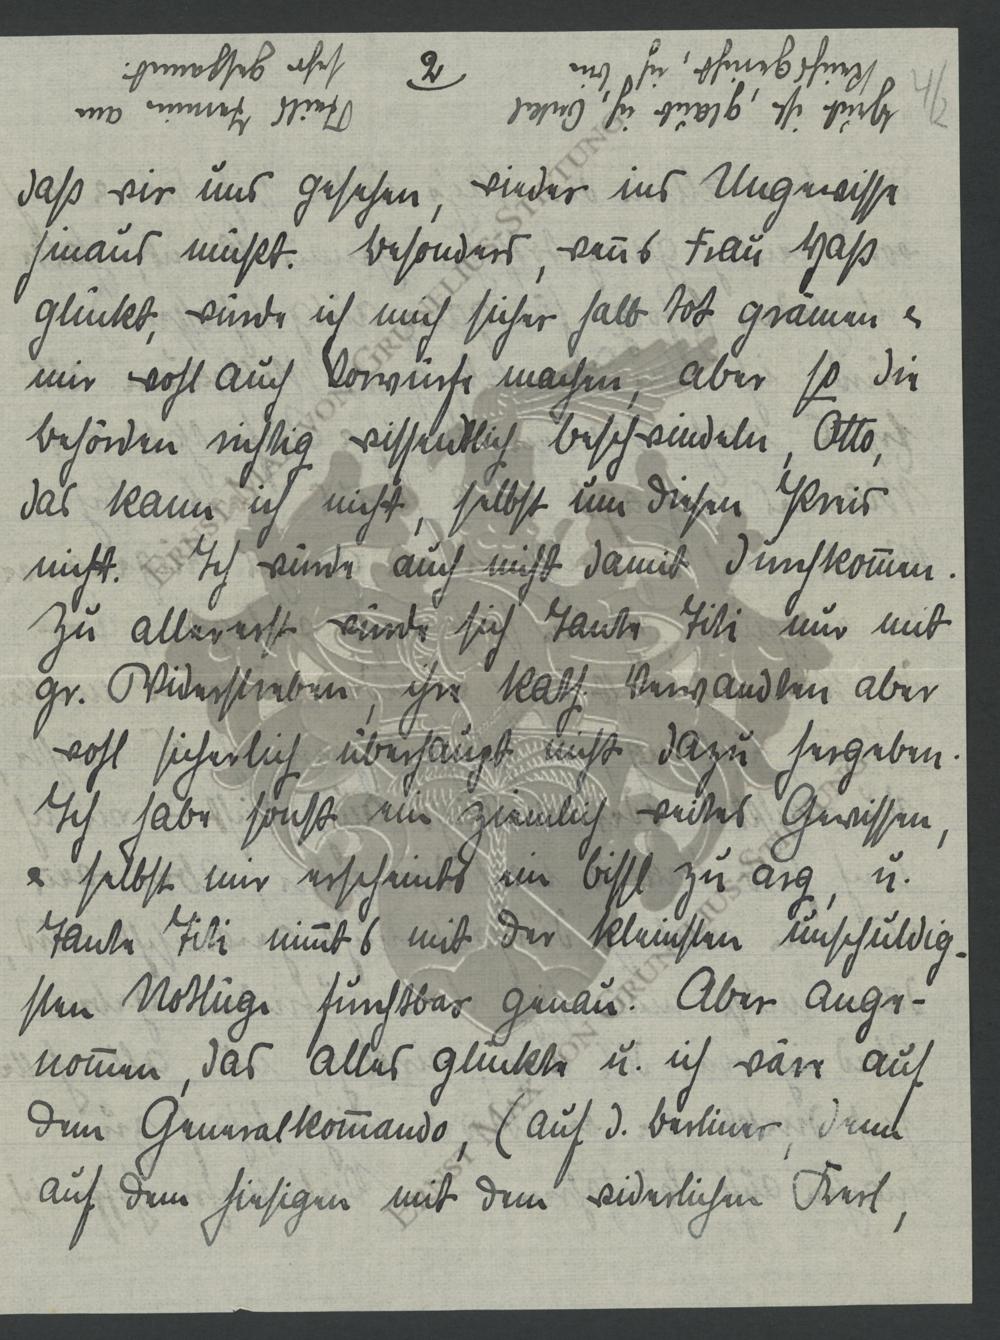 Heut ist, glaub ich, Onkel
Theils Termin am
Reichsgericht, ich bin
sehr gespannt.
2
4/2
daß wir uns gesehen, wieder ins Ungewisse
hinaus müßt. Besonders, wenns Frau Haß
glückt, würde ich mich sicher halb tot grämen &
mir wohl auch Vorwürfe machen, aber so die
Behörden richtig wissentlich beschwindeln, Otto,
das kann ich nicht, selbst um diesen Preis
nicht. Ich würde auch nicht damit durchkom̅en.
Zu allererst würde sich Tante Titi nur mit
gr. Widerstreben, ihre kath. Verwandten aber
wohl sicherlich überhaupt nicht dazu hergeben.
Ich habe sonst ein ziemlich weites Gewissen,
& selbst mir erscheints ein bissl zu arg, u.
Tante Titi nim̅ts mit der kleinsten unschuldig-
sten Notlüge furchtbar genau. Aber ange-
nom̅en, das alles glückte u. ich wäre auf
dem Generalkom̅ando, (auf d. Berliner, denn
auf dem hiesigen mit dem widerlichen Kerl,
ERNST-MAX VON GRUNELIUS-STIFTUNG
ERNST-MAX VON GRUNELIUS-STIFTUNG